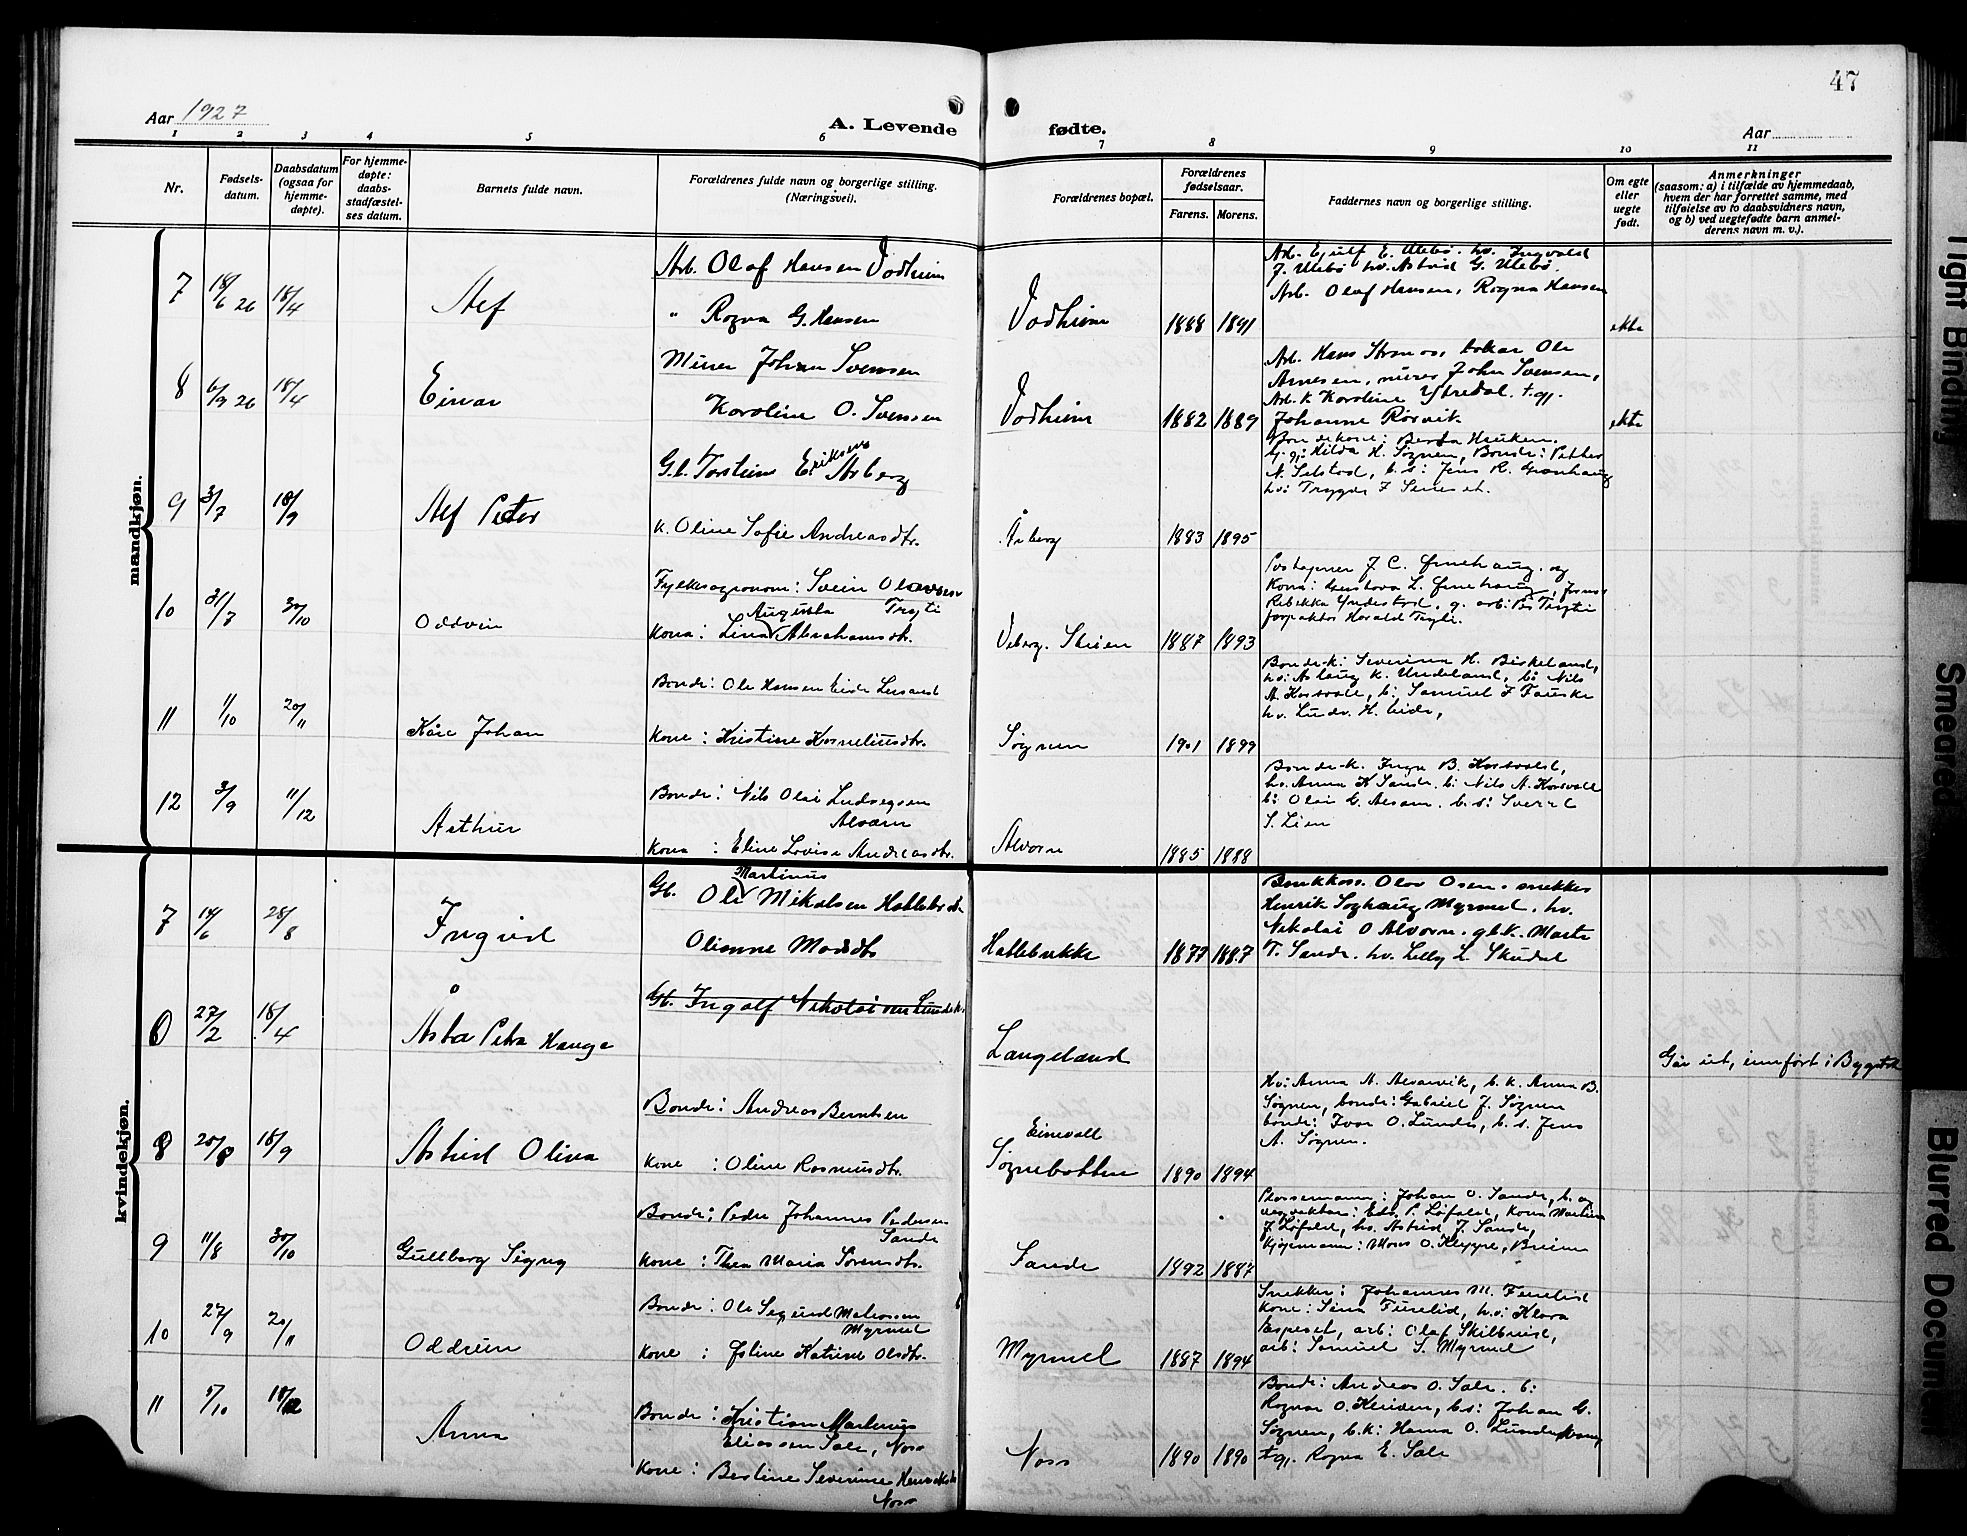 47
Aar 1927
A. Levende
fødte.
Aar
1 2 3 4 5 6 7 8 9 10 11
Nr.
Fødsels-
datum.
Daabsdatum
(ogsaa for
hjemme-
døpte).
For hjemme-
døpte:
daabs-
stadfæstel-
ses datum.
Barnets fulde navn.
Forældrenes fulde navn og borgerlige stilling.
(Næringsvei).
Forældrenes bopæl.
Forældrenes
fødselsaar.
Farens. Morens.
Faddernes navn og borgerlige stilling.
Om egte
eller
uegte
født.
Anmerkninger
(saasom: a) i tilfælde av hjemmedaab,
hvem der har forrettet samme, med
tilføielse av to daabsvidners navn,
og b) ved uegtefødte barn anmel-
derens navn m. v.).
mandkjøn.
7 18/6 26 18/4 Alf
Arb. Olaf Hansen Vadheim
" Ragna G. Hansen
Vadheim 1888 1891
Arb. Ejulf E. Ulebø. hv. Ingvald
J. Ulebø hv. Astrid G. Ulebø.
Arb. Olaf Hansen, Ragna Hansen
ekte
8 6/9 26 18/4 Einar
Murer Johan Svensen
Karoline O. Svensen
Vadheim 1882 1889
Arb. Hans bakar Ole
Arnesen, murer John Svensen,
Arb. k. Karoline Ytredal. t.gj.
Johanne Rørvik
ekte
9 3/7 18/9 Alf Peter
G.b. Torstein Eriksen Årberg
k. Oline Sofie Andreasdtr.
Årberg 1883 1895
Bondekone: Berta Hauken.
G. gj: Hilda H. Søgnen, Bonde: Petter
N. Selstad, b.s: Jens R. Grønhaug
hv: Trygve F
10 31/7 30/10 Oddvin
Fylkesagronom: Svein Olavsen
Trygti
Kona: Lina Augusta Abrahamsdtr.
Veberg. Skien 1887 1893
J. C. og
Kona: L.
Rebekka Yndestad, g. arb:
Harald
11 1/10 20/11 Kåre Johan
Bonde: Ole Hansen Eide
Kone: Kristine Korneliusdtr.
Søgnen 1901 1899
Bonde-k: Severina H. Birkeland,
hv: Aslaug K. Undeland, b: Nils
A. Korsvoll, b: Samuel J Fauske
hv. Ludv. H. Eide,
12 3/9 11/12 Arthur
Bonde: Nils Olai Ludvigsen
Alværn
Kona: Eline Lovise Andreasdtr.
Alværn 1885 1888
Bonde-k. Inga B. Korsvoll,
hv. Anna K Sande. b: Nils A. Korsvoll
b: Olai b.s: Sverre
S. Lien
kvindekjøn.
7 14/6 28/8 Ingrid
Gb. Ole Martinus Mikalsen Hallebrekke
Olianne Madsdtr
Hallebrekke 1877 1887
Brukkass. Olav Osen. snekker
Henrik Myrmel. hv.
Nikolai O Alværn. gbk. Marte
T. Sande. hv. Lelly L. Skudal
0 27/2 18/4 Åsta Petra Hauge
Gb. Ingolf Nikolai
Langeland
Går ut, innført i Bygstad
8 20/8 18/9 Astrid Olina
Bonde: Andreas Berntsen
Kone: Oline Rasmusdtr.
Einevoll
Søgnebotten 1890 1894
Hv: Anna A. Alvarvik, b.k. Anna B.
Søgnen, bonde: Gabriel J. Søgnen
bonde: Ivar O. Lunde, b.s. Jens
A. Søgnen.
9 11/8 30/10 Gullborg Signy
Bonde: Peder Johannes Pedersen
Sande
Kone: Thea Maria Sørensdtr.
Sande 1892 1887
Johan O. Sande, b. og
P. Løfald, Kona Martine
J. Løfald, hv. Astrid J. Sande,
Kjøpmann: Mons O. Kleppe, Breim
10 27/9 20/11 Oddrun
Bonde: Ole Sigurd
Myrmel
Kone: Østine Katrine Olsdtr.
Myrmel 1887 1894
Snekker: Johannes M. Furelid
kone: Sina Furelid, hv: Klara
Espeset, arb: Olaf Skilbreid,
arb: Samuel S. Myrmel
11 5/10 18/12 Anna
Bonde: Kristian Martinus
Eliassen Sale, Noss
Kone: Bertine Severine
Noss
Noss 1890 1890
Bonde: Andreas O. Sale. b:
Ragnar O. b.s: Johan
Søgnen, b.k: Hanna O.
t.gj. Ragna E. Sale
Tight Binding
Smeared
Blurred Document